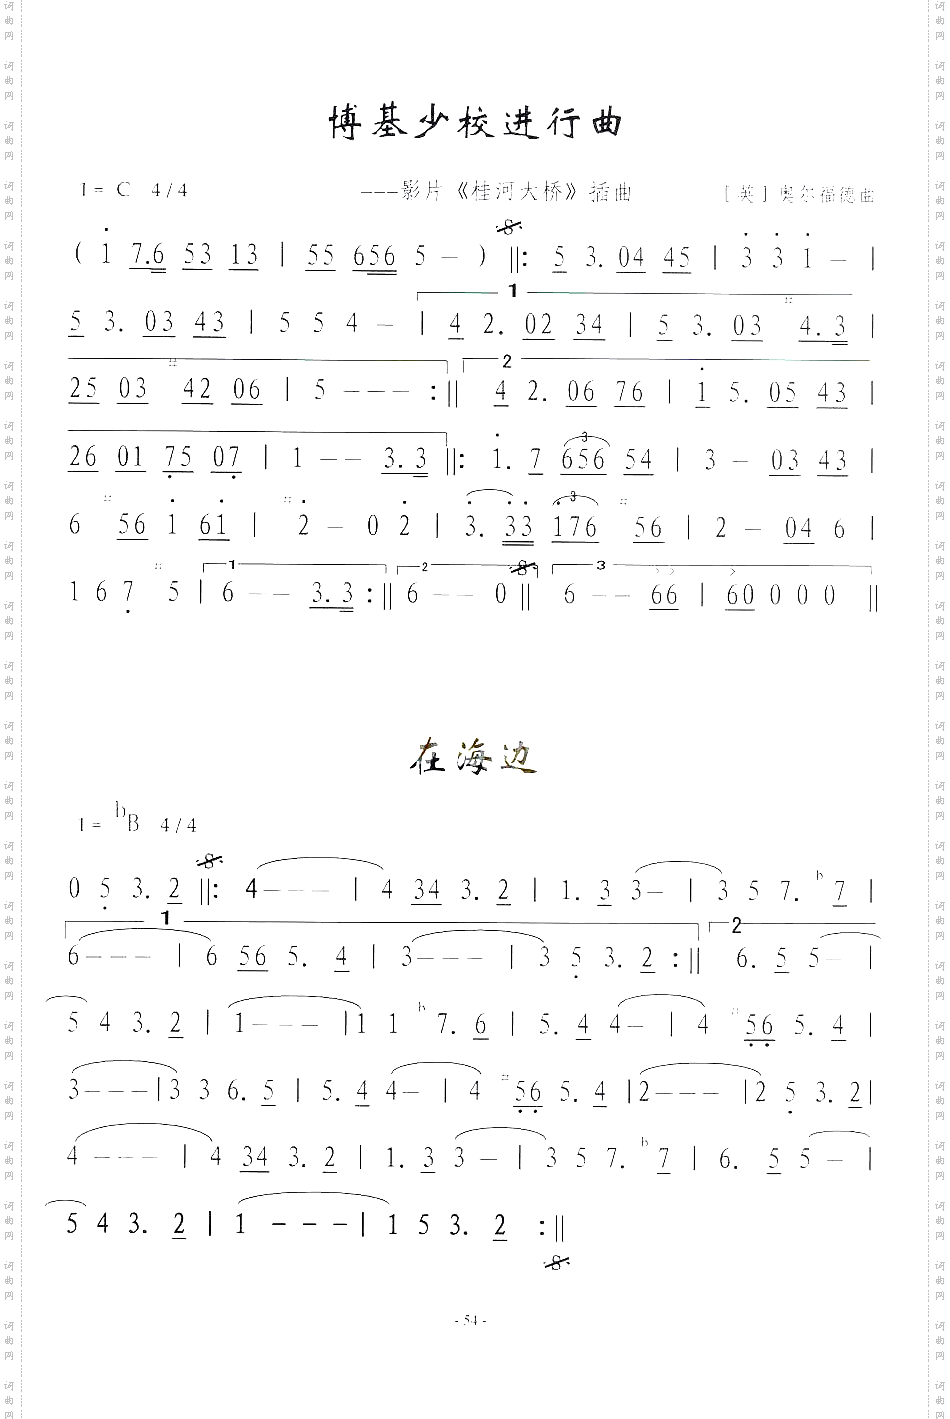 博基少校进行曲
1= C 4/4 ---影片《桂河大桥》插曲 [英]奥尔福德曲
( 1 7.6 53 13 | 55 656 5 - ) ||: 5 3. 04 45 | 3 3 1 - |
1
5 3. 03 43 | 5 5 4 - | 4 2. 02 34 | 5 3. 03 4.3 |
2
25 03 #42 06 | 5 - - - :|| 4 2. 06 76 | 1 5. 05 43 |
3
26 01 75 07 | 1 - - 3.3 ||: 1. 7 656 54 | 3 - 03 43 |
3
6 #56 1 61 | #2 - 0 2 | 3. 33 176 #56 | 2 - 04 6 |
1 2 3
1 6 7 #5 | 6 - - 3.3 :|| 6 - - 0 || 6 - - 66 | 60 0 0 0 ||
在海边
1= bB 4/4
0 5 3. 2 ||: 4 - - - | 4 34 3. 2 | 1. 3 3 - | 3 5 7. b7 |
1 2
6 - - - | 6 56 5. 4 | 3 - - - | 3 5 3. 2 :|| 6. 5 5 - |
5 4 3. 2 | 1 - - - | 1 1 b7. 6 | 5. 4 4 - | 4 #56 5. 4 |
3 - - - | 3 3 6. 5 | 5. 4 4 - | 4 #56 5. 4 | 2 - - - | 2 5 3. 2 |
4 - - - | 4 34 3. 2 | 1. 3 3 - | 3 5 7. b7 | 6. 5 5 - |
5 4 3. 2 | 1 - - - | 1 5 3. 2 :||
- 54 -